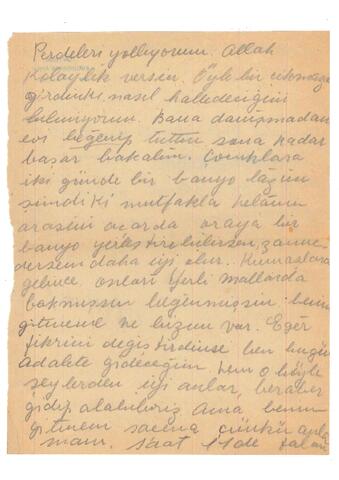 Perdeleri yolluyorum. Allah
Kolaylık versen. Öyle bir çıkmaza
girdinki, nasıl halledeciğini
bilmiyorum. Bana danışmadan
evi beğenip tuttun sona kadar
başar bakalım. Çocuklara
iki günde bir banyo lâzım
şimdiki mutfakla helânın
arasını acarda araya bir
banyo yerleştirebilirsen, zanne
dersem daha iyi olur. Kumaşlara
gelince, onları Yerli Mallarda
bakmışsın beğenmişsin benim
gitmeme ne lüzum var. Eğer
fikrini değiştirdinse ben bugün
Adalete gideceğim, hem o böyle
şeylerden iyi anlar, beraber
gidip alabiliriz Ama benim
gitmem saçma çünkü anla
mam. saat 11 de falan